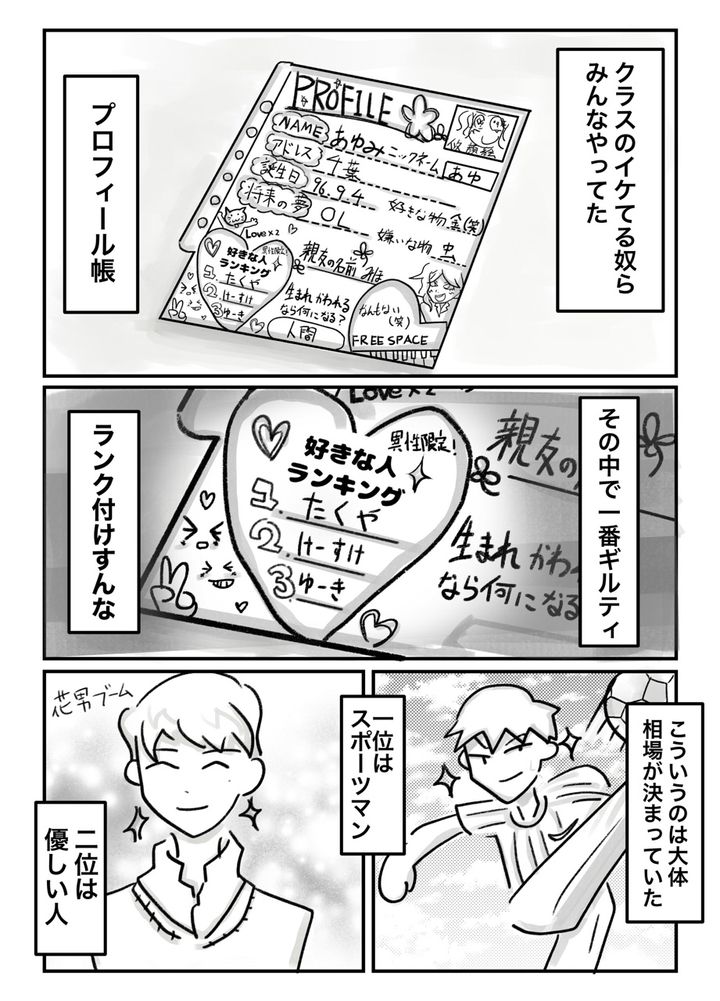 クラスのイケてる奴ら
みんなやってた
プロフィール帳
PROFILE
NAME あゆみ ニックネーム あゆ
アドレス 千葉
誕生日 96.9.4 好きな物 金(笑)
将来の夢 OL 嫌いな物 虫
Love×2
異性限定!
好きな人
ランキング
1. たくや
2. けーすけ
3. ゆーき
親友の名前
生まれかわる
なら何になる?
人間
なんもない
(笑)
FREE SPACE
その中で一番ギルティ
ランク付けすんな
Love×2
異性限定!
好きな人
ランキング
1. たくや
2. けーすけ
3. ゆーき
親友の
生まれかわ
なら何になる
こういうのは大体
相場が決まっていた
一位は
スポーツマン
花男ブーム
二位は
優しい人